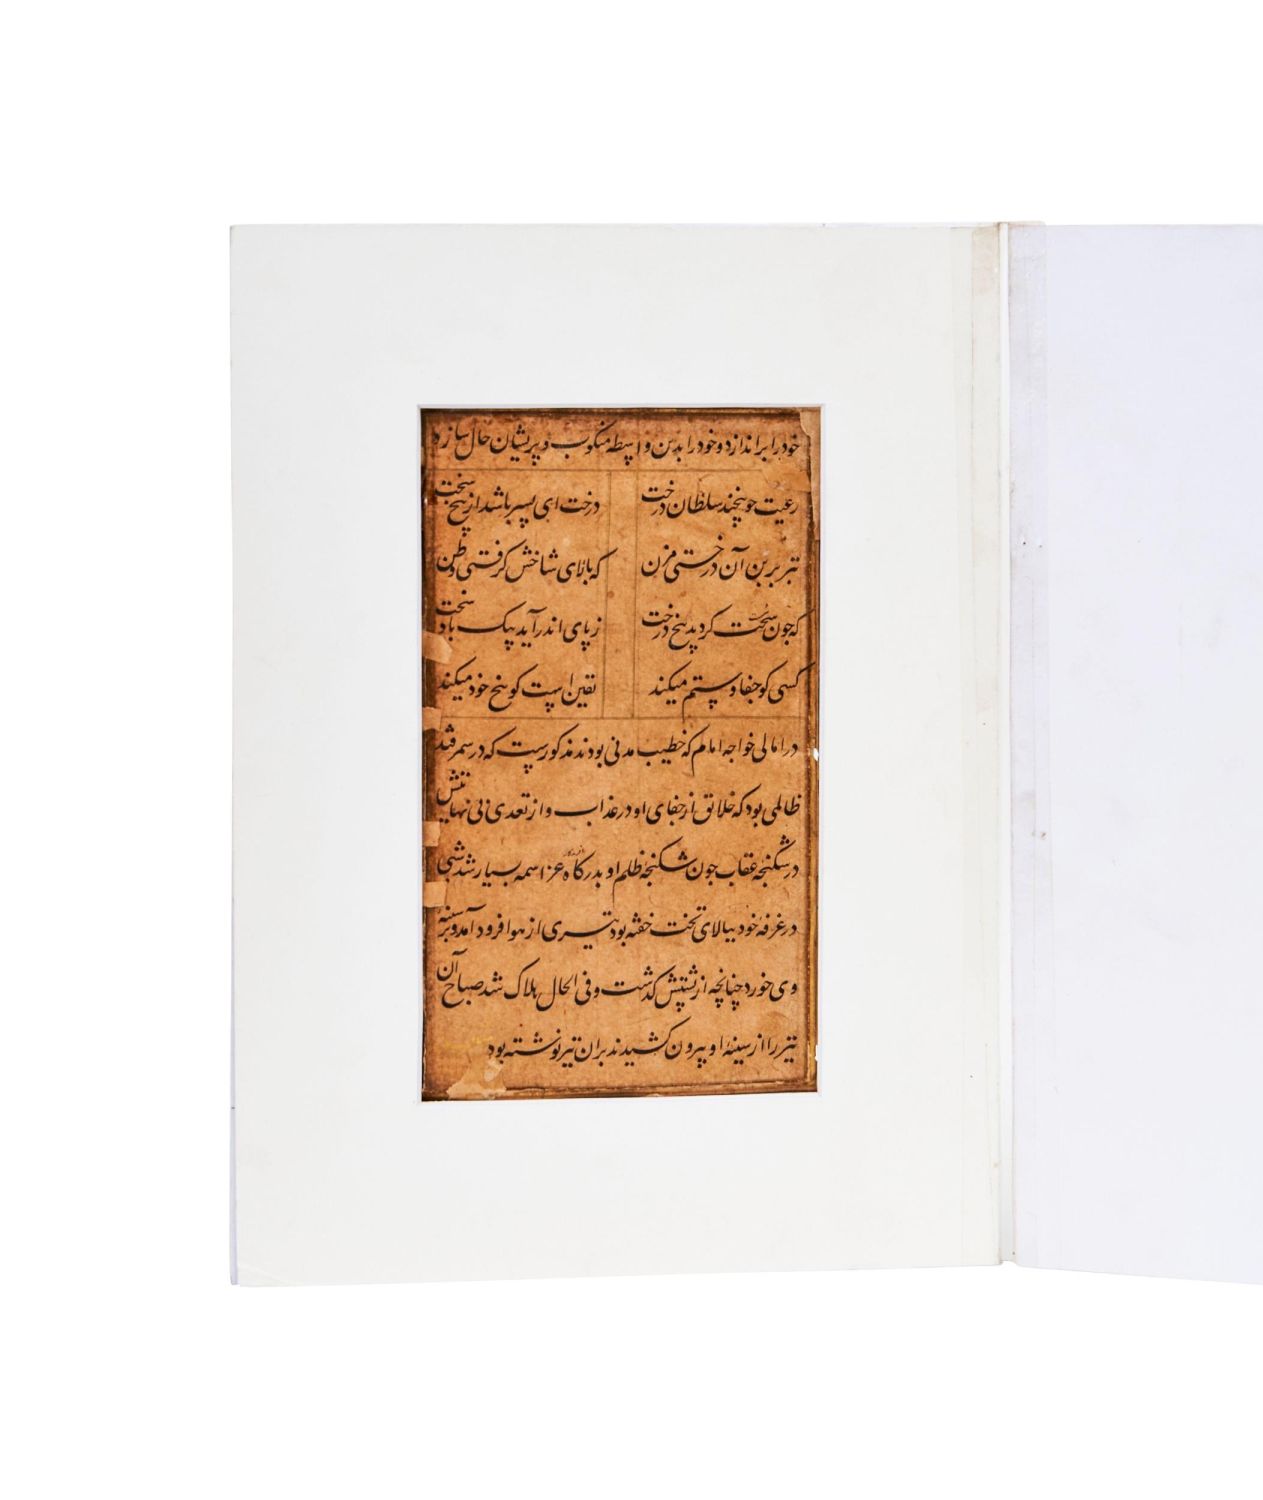 خود را براندازد و خود را بدین واسطه منکوب و پریشان حال سازد
رعیت چو بیخند سلطان درخت درخت ای پسر باشد از بیخ سخت
تبر بر بن آن درختی مزن که بالای شاخش گرفتی وطن
که چون سخت گردید بیخ درخت ز پای اندر آید بیک باد سخت
کسی کو جفا و ستم میکند یقین است کو بیخ خود میکند
در امالی خواجه امام که خطیب مدنی بودند مذکورست که در سمرقند
ظالمی بود که خلائق از جفای او در عذاب و از تعدی بی نهایتش
در شکنجه عقاب چون شکنجه ظلم او بدرگاه عز اسمه بسیار شد شبی
در غرفه خود ببالای تخت خفته بود تیری از هوا فرود آمد و بر سینه
وی خورد چنانچه از پشتش گذشت و فی الحال هلاک شد صباح آن
تیر را از سینه او بیرون کشیدند بران تیر نوشته بود